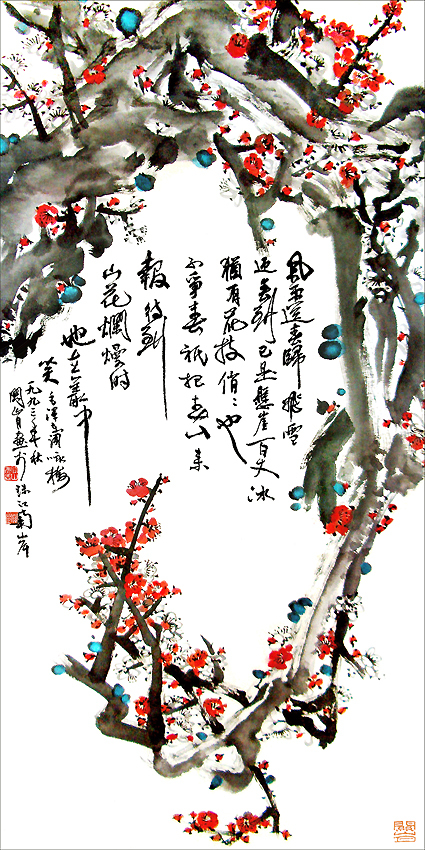 風雨送春歸飛雪
迎春到已是懸崖百丈冰
猶有花枝俏〻也
不爭春祇把春來
報待到
山花爛熳時
她在叢中
笑 毛澤東詞咏梅
一九九三年秋
關山月畫於
珠江南岸